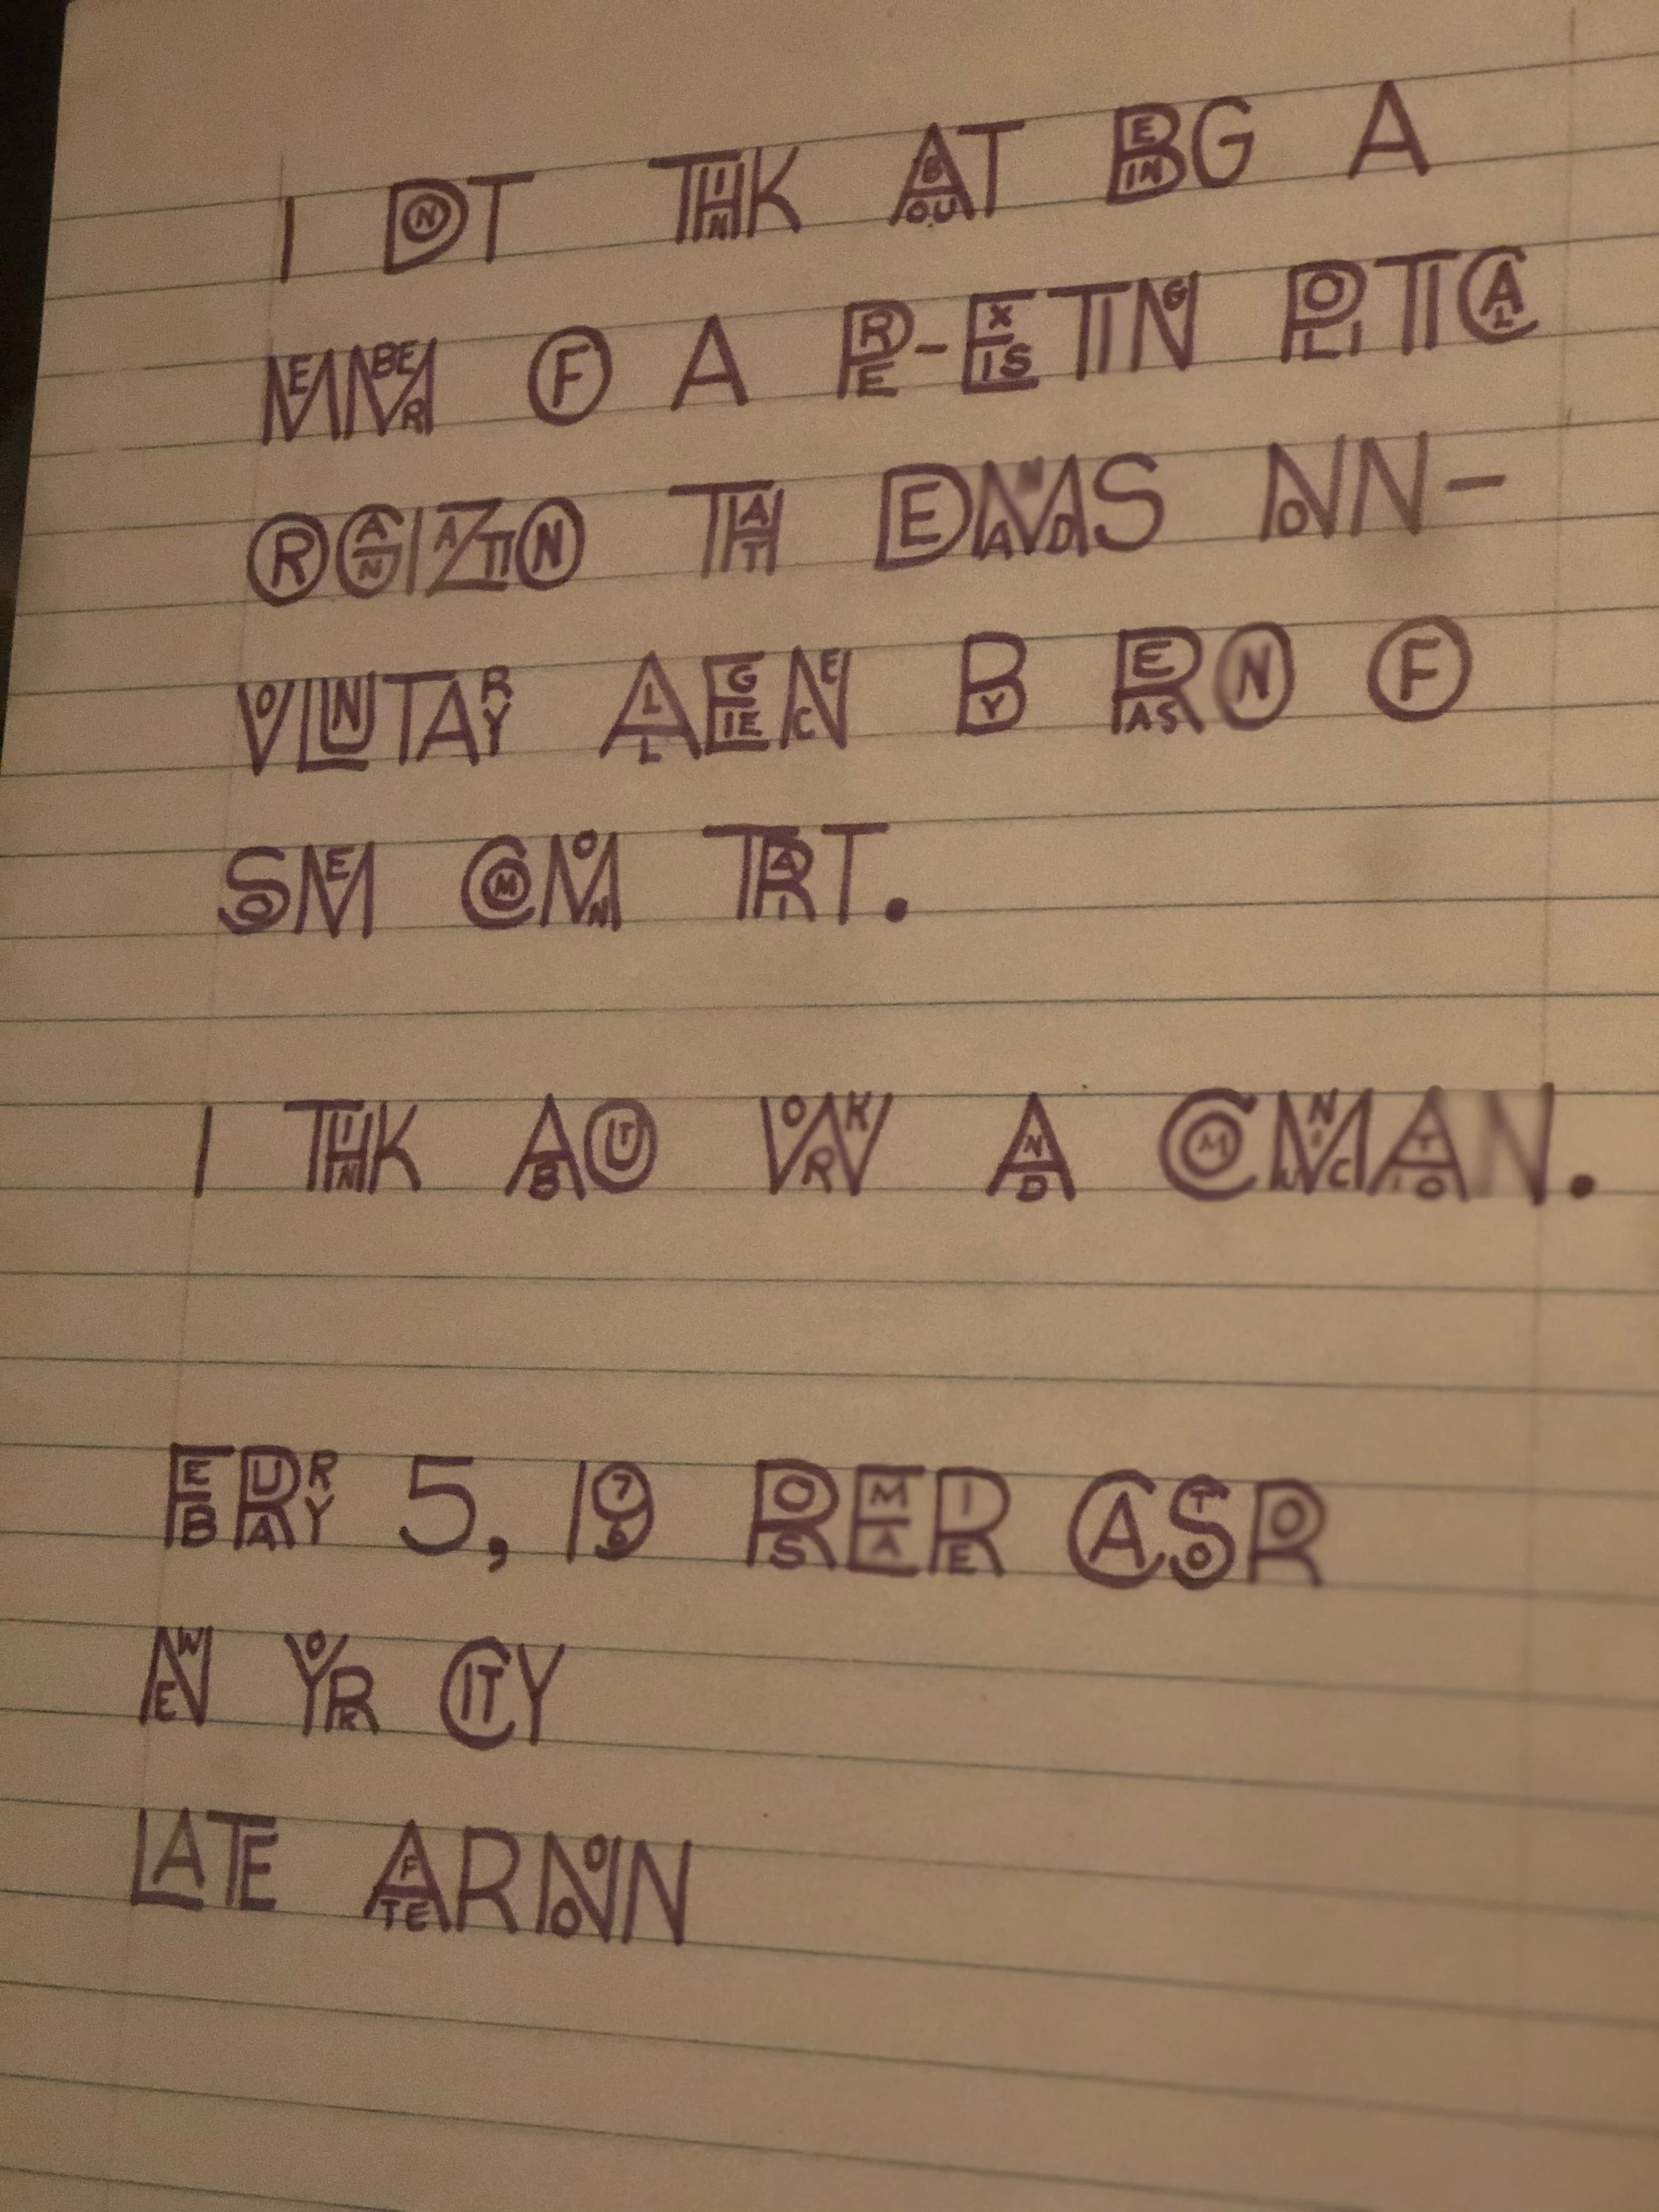 I DONT THINK ABOUT BEING A
MEMBER OF A PRE-EXISTING POLITICAL
ORGANIZATION THAT DEMANDS NON-
VOLUNTARY ALLEGIENCE BY REASON OF
SOME COMMON TRAIT.
I THINK ABOUT WORK AND COMMUNICATION.
FEBRUARY 5, 1976 ROSEMARIE CASTORO
NEW YORK CITY
LATE AFTERNOON